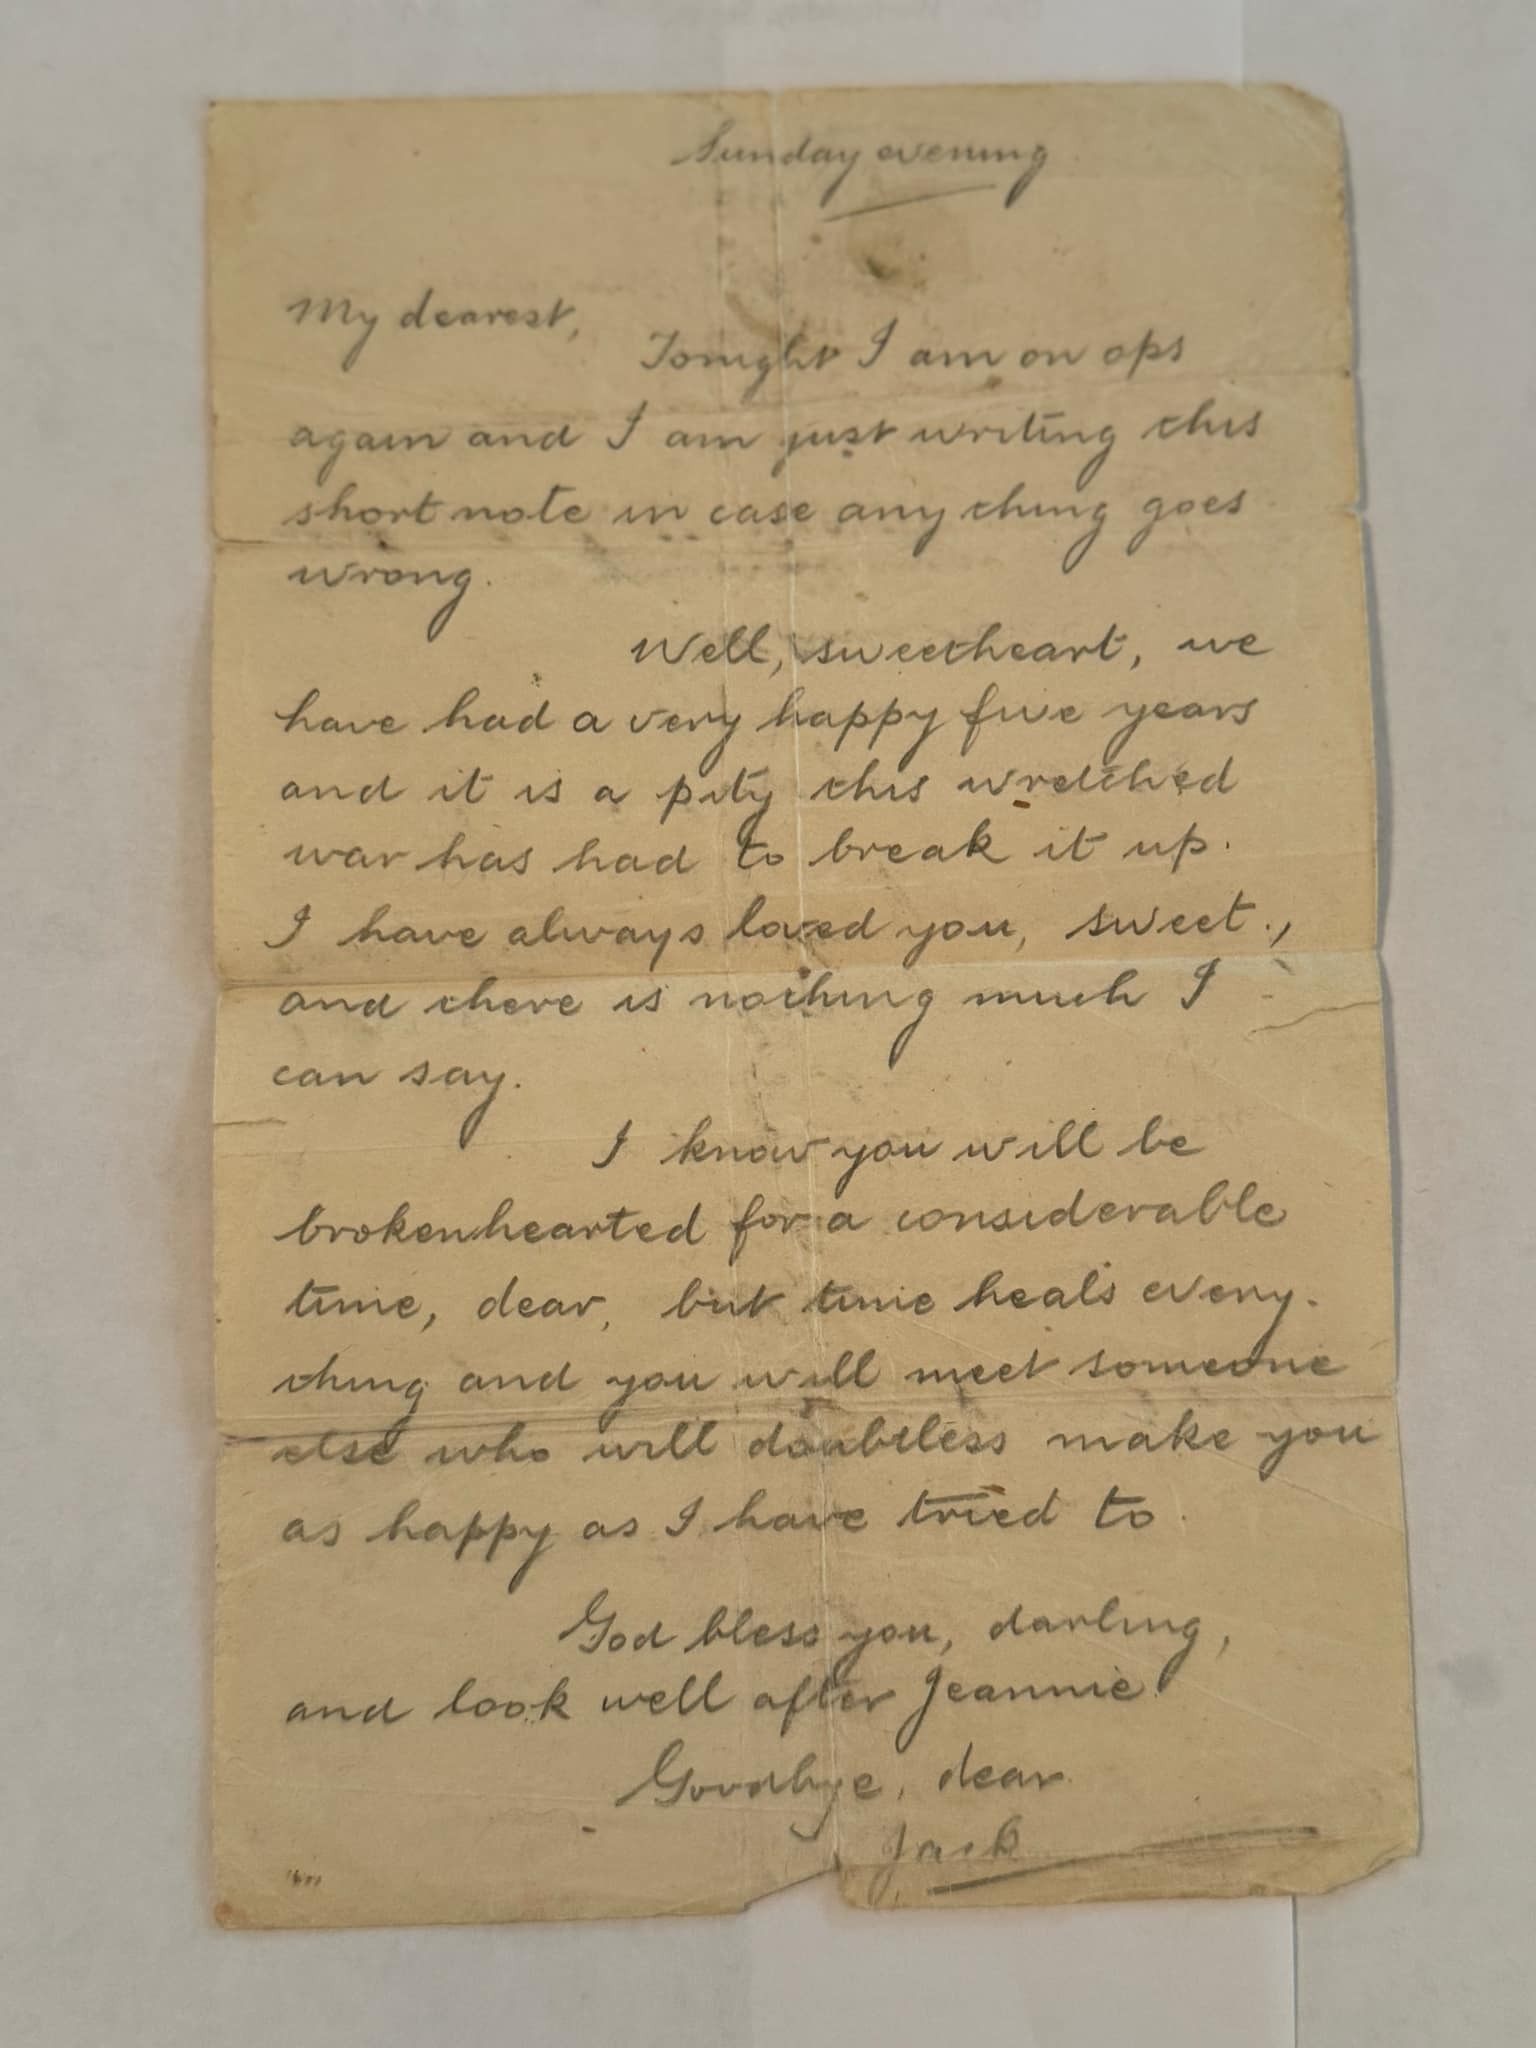 Sunday evening
My dearest,
Tonight I am on ops
again and I am just writing this
short note in case anything goes
wrong.
Well, sweetheart, we
have had a very happy five years
and it is a pity this wretched
war has had to break it up.
I have always loved you, sweet.,
and there is nothing much I
can say.
I know you will be
brokenhearted for a considerable
time, dear, but time heals every-
thing and you will meet someone
else who will doubtless make you
as happy as I have tried to.
God bless you, darling,
and look well after Jeannie.
Goodbye, dear.
Jack